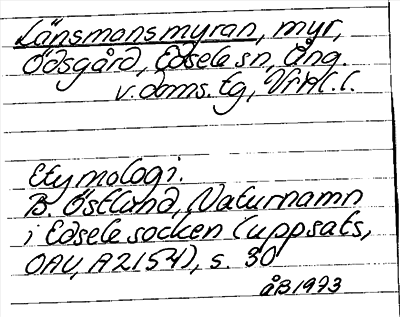 Länsmansmyran, myr,
Ödsgård, Edsele sn, Ång.
v.doms.tg, Vrkl.l.
Etymologi.
B. Östlund, Naturnamn
i Edsele socken (uppsats,
OAU, A 2154), s. 30
ÅB 1973